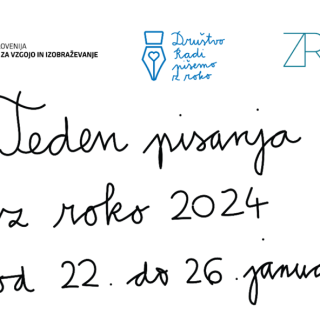 OVENIJA
ZA VZGOJO IN IZOBRAŽEVANJE
Društvo
Radi
pišemo
z roko
ZR
Teden pisanja
z roko 2024
od 22. do 26. janua